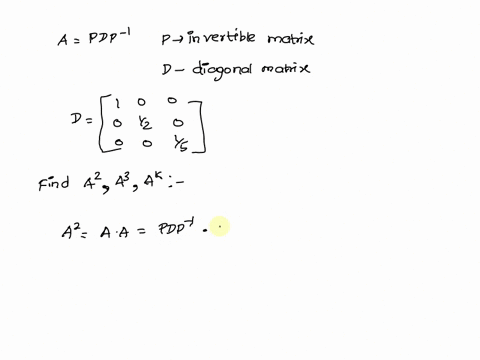 A = PDP⁻¹ P → invertible matrix
D - diagonal matrix
D = [1 0 0
0 1/2 0
0 0 1/5]
Find A², A³, Aᴷ :-
A² = A · A = PDP⁻¹ ·